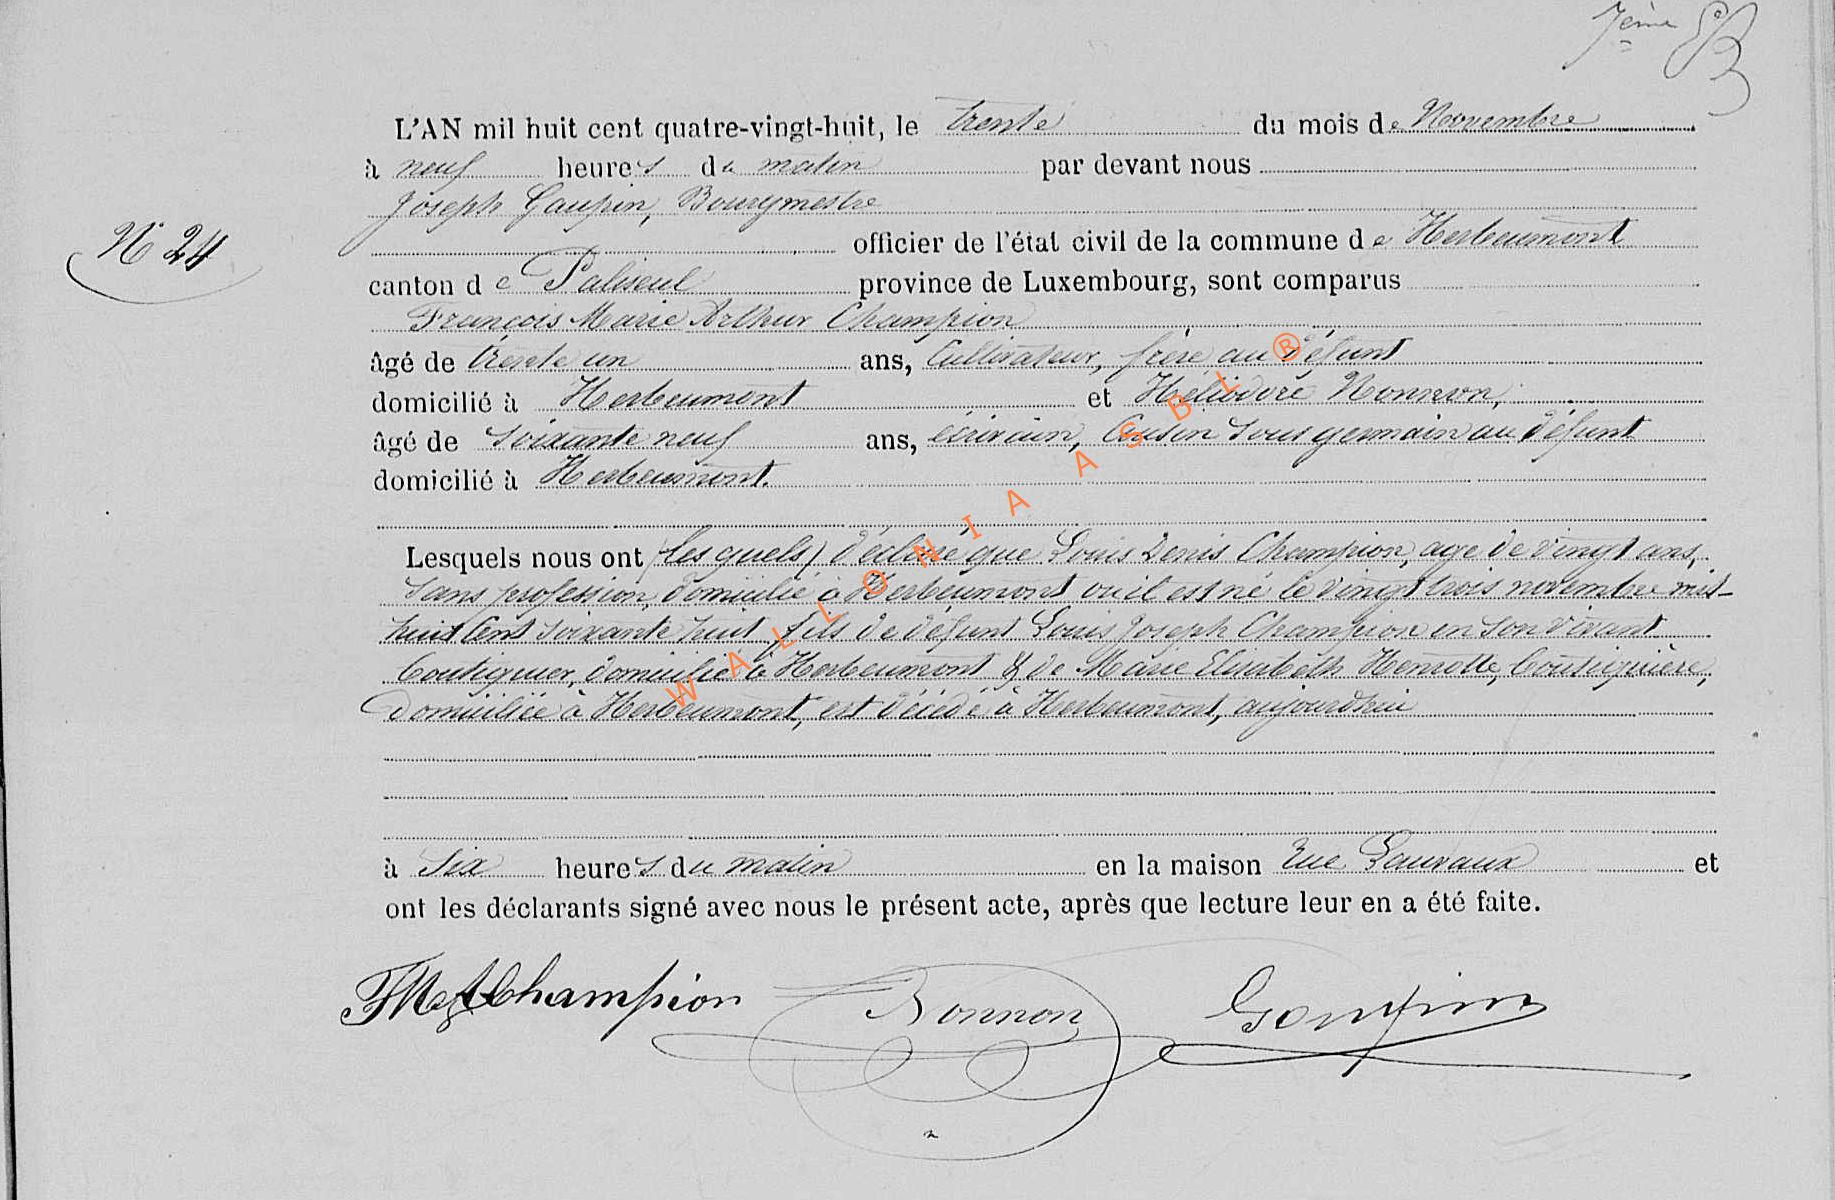 7ème
L'AN mil huit cent quatre-vingt-huit, le trente du mois de Novembre
à neuf heures du matin par devant nous
Joseph Gaupin, Bourgmestre
officier de l'état civil de la commune de Herbeumont
N° 24
canton de Paliseul province de Luxembourg, sont comparus
François Marie Arthur Champion
âgé de trente un ans, Cultivateur, frère au défunt
domicilié à Herbeumont et Héliodore Nonnon,
âgé de soixante neuf ans, écrivain, Cousin sous germain au défunt
domicilié à Herbeumont.
Lesquels nous ont (les quels) déclaré que Louis Denis Champion, age de vingt ans,
sans profession, domicilié à Herbeumont ou il est né le vingt trois novembre mil
huit cent soixante huit, fils de défunt Louis Joseph Champion en son vivant
boutiquier, domicilié à Herbeumont & de Marie Elisabeth Henrotte, boutiquière,
domiciliée à Herbeumont, est décédé à Herbeumont, aujourdhui
à six heures du matin en la maison rue Lauvaux et
ont les déclarants signé avec nous le présent acte, après que lecture leur en a été faite.
Champion Nonnon Gaupin
WALLONIA ASBL ®